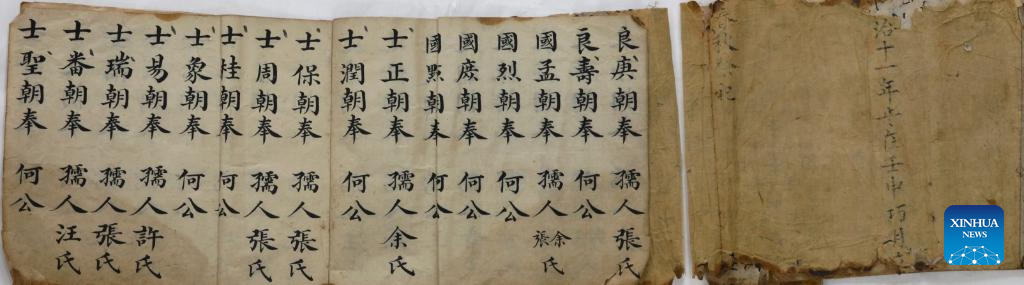 治十一年歲在壬申巧月
祀
良庚朝奉 孺人張氏
良壽朝奉 何公
國孟朝奉 孺人余張氏
國烈朝奉 何公
國慶朝奉 何公
國點朝奉 何公
士正朝奉 孺人余氏
士潤朝奉 何公
士保朝奉 孺人張氏
士周朝奉 孺人張氏
士桂朝奉 何公
士象朝奉 何公
士易朝奉 孺人許氏
士瑞朝奉 孺人張氏
士番朝奉 孺人汪氏
士聖朝奉 何公
XINHUA
NEWS